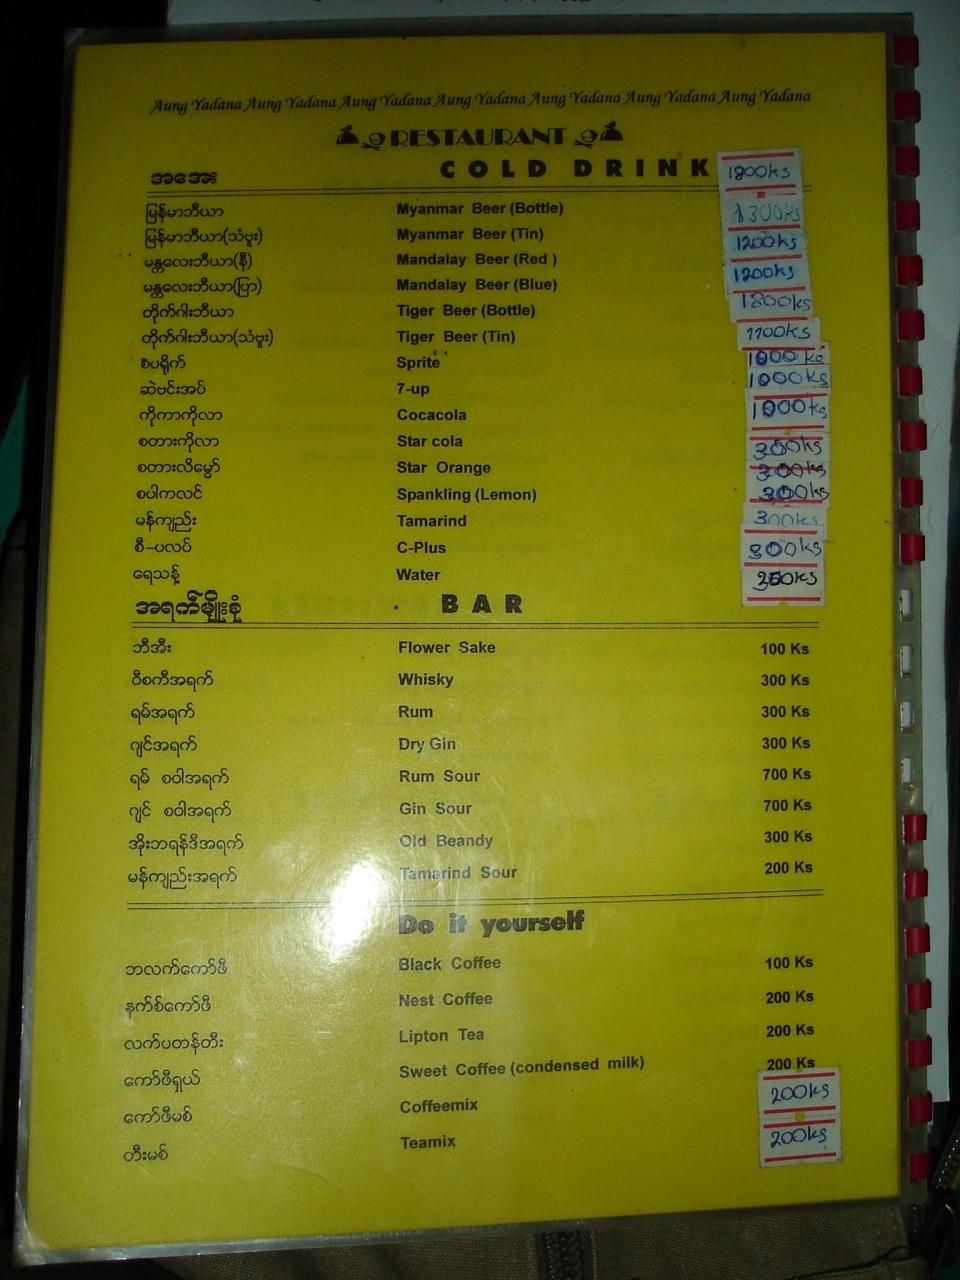 Aung Yadana Aung Yadana Aung Yadana Aung Yadana Aung Yadana Aung Yadana Aung Yadana
RESTAURANT
အအေး COLD DRINK 1800ks
မြန်မာဘီယာ Myanmar Beer (Bottle) 1300ks
မြန်မာဘီယာ(သံဗူး) Myanmar Beer (Tin) 1200ks
မန္တလေးဘီယာ(နီ) Mandalay Beer (Red ) 1200ks
မန္တလေးဘီယာ(ပြာ) Mandalay Beer (Blue) 1800ks
တိုက်ဂါးဘီယာ Tiger Beer (Bottle)
တိုက်ဂါးဘီယာ(သံဗူး) Tiger Beer (Tin) 1100ks
စပရိုက် Sprite 1000ks
ဆဲဗင်းအပ် 7-up 1000ks
ကိုကာကိုလာ Cocacola 1000ks
စတားကိုလာ Star cola 300ks
စတားလိမ္မော် Star Orange 300ks
စပါကလင် Spankling (Lemon) 300ks
မန်ကျည်း Tamarind 300ks
စီ-ပလပ် C-Plus 300ks
ရေသန့် Water
အရက်မျိုးစုံ BAR
ဘီအီး Flower Sake 100 Ks
ဝီစကီအရက် Whisky 300 Ks
ရမ်အရက် Rum 300 Ks
ဂျင်အရက် Dry Gin 300 Ks
ရမ် စဝါအရက် Rum Sour 700 Ks
ဂျင် စဝါအရက် Gin Sour 700 Ks
အိုးဘရန်ဒီအရက် Old Beandy 300 Ks
မန်ကျည်းအရက် Tamarind Sour 200 Ks
Do it yourself
ဘလက်ကော်ဖီ Black Coffee 100 Ks
နက်စ်ကော်ဖီ Nest Coffee 200 Ks
လက်ပတန်တီး Lipton Tea 200 Ks
ကော်ဖီရှယ် Sweet Coffee (condensed milk) 200 Ks
ကော်ဖီမစ် Coffeemix 200ks
တီးမစ် Teamix 200ks